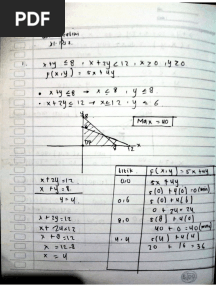 PDF
1. x+y ≤ 8, x+2y ≤ 12, x ≥ 0, y ≥ 0
f(x,y) = 5x + 4y
• x+y ≤ 8 → x ≤ 8, y ≤ 8
• x+2y ≤ 12 → x ≤ 12, y ≤ 6
Max = 40
8
6
8
12
x+2y = 12
x+y = 8
y = 4
x+2y = 12
x+8 = 12
x = 12-8
x = 4
titik f(x,y) = 5x+4y
0,0 5x + 4y
5(0) + 4(0) = 0
0,6 5(0) + 4(6)
0 + 24 = 24
8,0 5(8) + 4(0)
40 + 0 = 40
4,4 5(4) + 4(4)
20 + 16 = 36